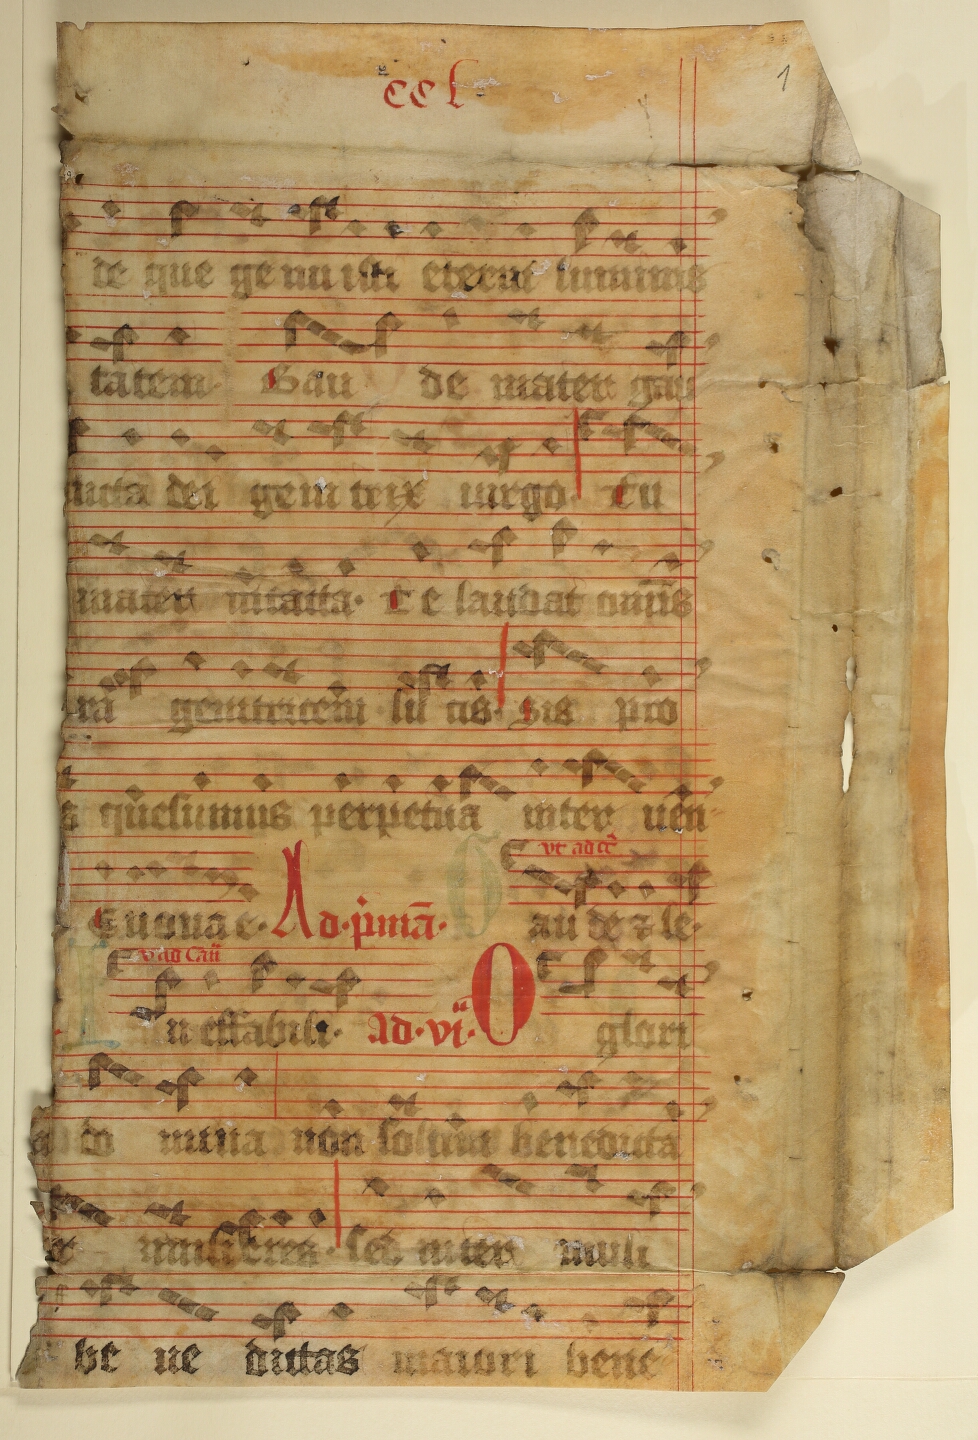 ccl
1
de que genuisti eterni luminis
tatem. Gau de mater gau
nuta dei genitrix uirgo. Tu
mater intacta. Te laudat omīs
ra genitricem lu cis. Sis pro
s quesumus perpetua inter uen
Euouae. Ad.p̄mā.
vt ad cc̄
au de ⁊ le.
n effabili. Ad.vi. O glori
do mina non solum benedicta
mulieres. sed inter muli
be ne dictas maiori bene